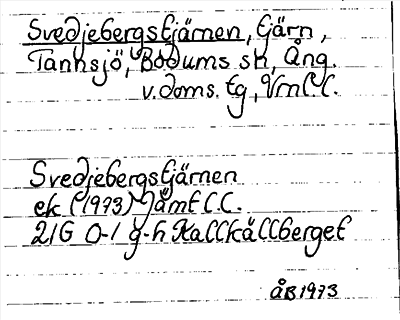 Svedjebergstjärnen, tjärn,
Tannsjö, Bodums sn, Ång.
v. doms. tg, Vrnl. l.
Svedjebergstjärnen
ek (1973) Jämtl l.
21G 0-1 g-h Kallkällberget
ÅB 1973